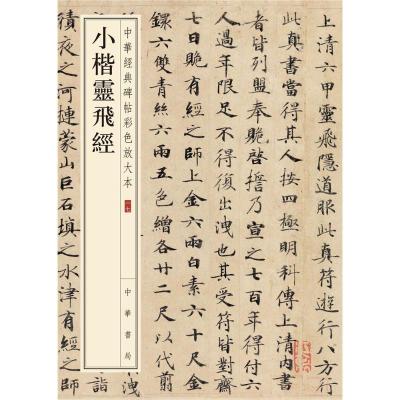 上清六甲靈飛隱道服此真符遊行八方行
此真書當得其人按四極明科傳上清內書
者皆列盟奉貺啓擔乃宣之七百年得付六
人過年限足不得復出洩也其受符皆對齋
七日貺有經之師上金六兩白素六十尺金
錄六雙青絲六兩五色繒各廿二尺以代翦
中華經典碑帖彩色放大本
小楷靈飛經
中華書局
積夜之河連蒙山巨石填之水津有經之